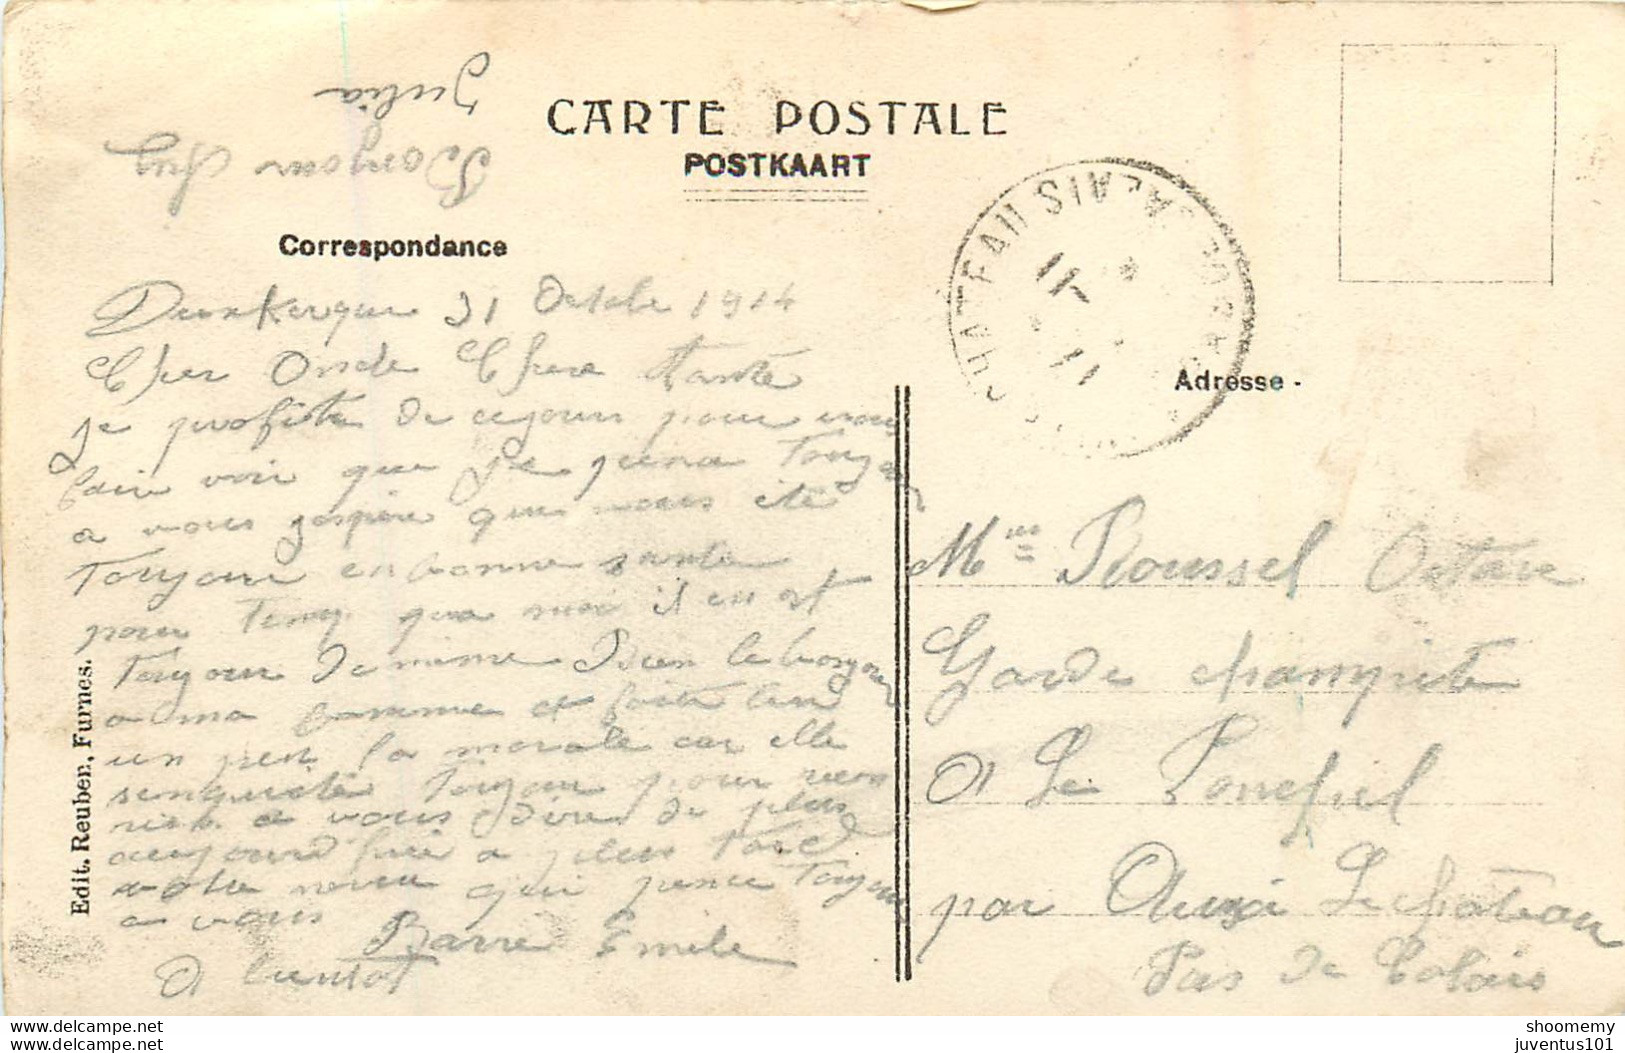 Julia
Bonjour
CARTE POSTALE
POSTKAART
Correspondance
Dunkerque 31 Octobre 1914
Cher Oncle Chere tante
je profite de cejour pour vous
fair voir que je pense Toujour
a vous jospere que vous ete
Toujour en bonne sante
pour Temp qua moi il en ot
Toujour de meme Bien le bonjour
a ma famme et faite lui
un peu la morale car elle
sinquiete Toujour pour rien
rien a vous dire de plus
aujourd hui a plus tard
votre neveu qui pense Toujour
a vous
Barre Emile
A bientot
Edit. Reuben, Furnes.
CHATEAU PAS DE CALAIS
11
11
Adresse -
Mme Roussel Octave
Garde champete
A Le Ponchel
par Auxi Le chateau
Pas De Calais
www.delcampe.net
www.delcampe.net
shoomemy
juventus101